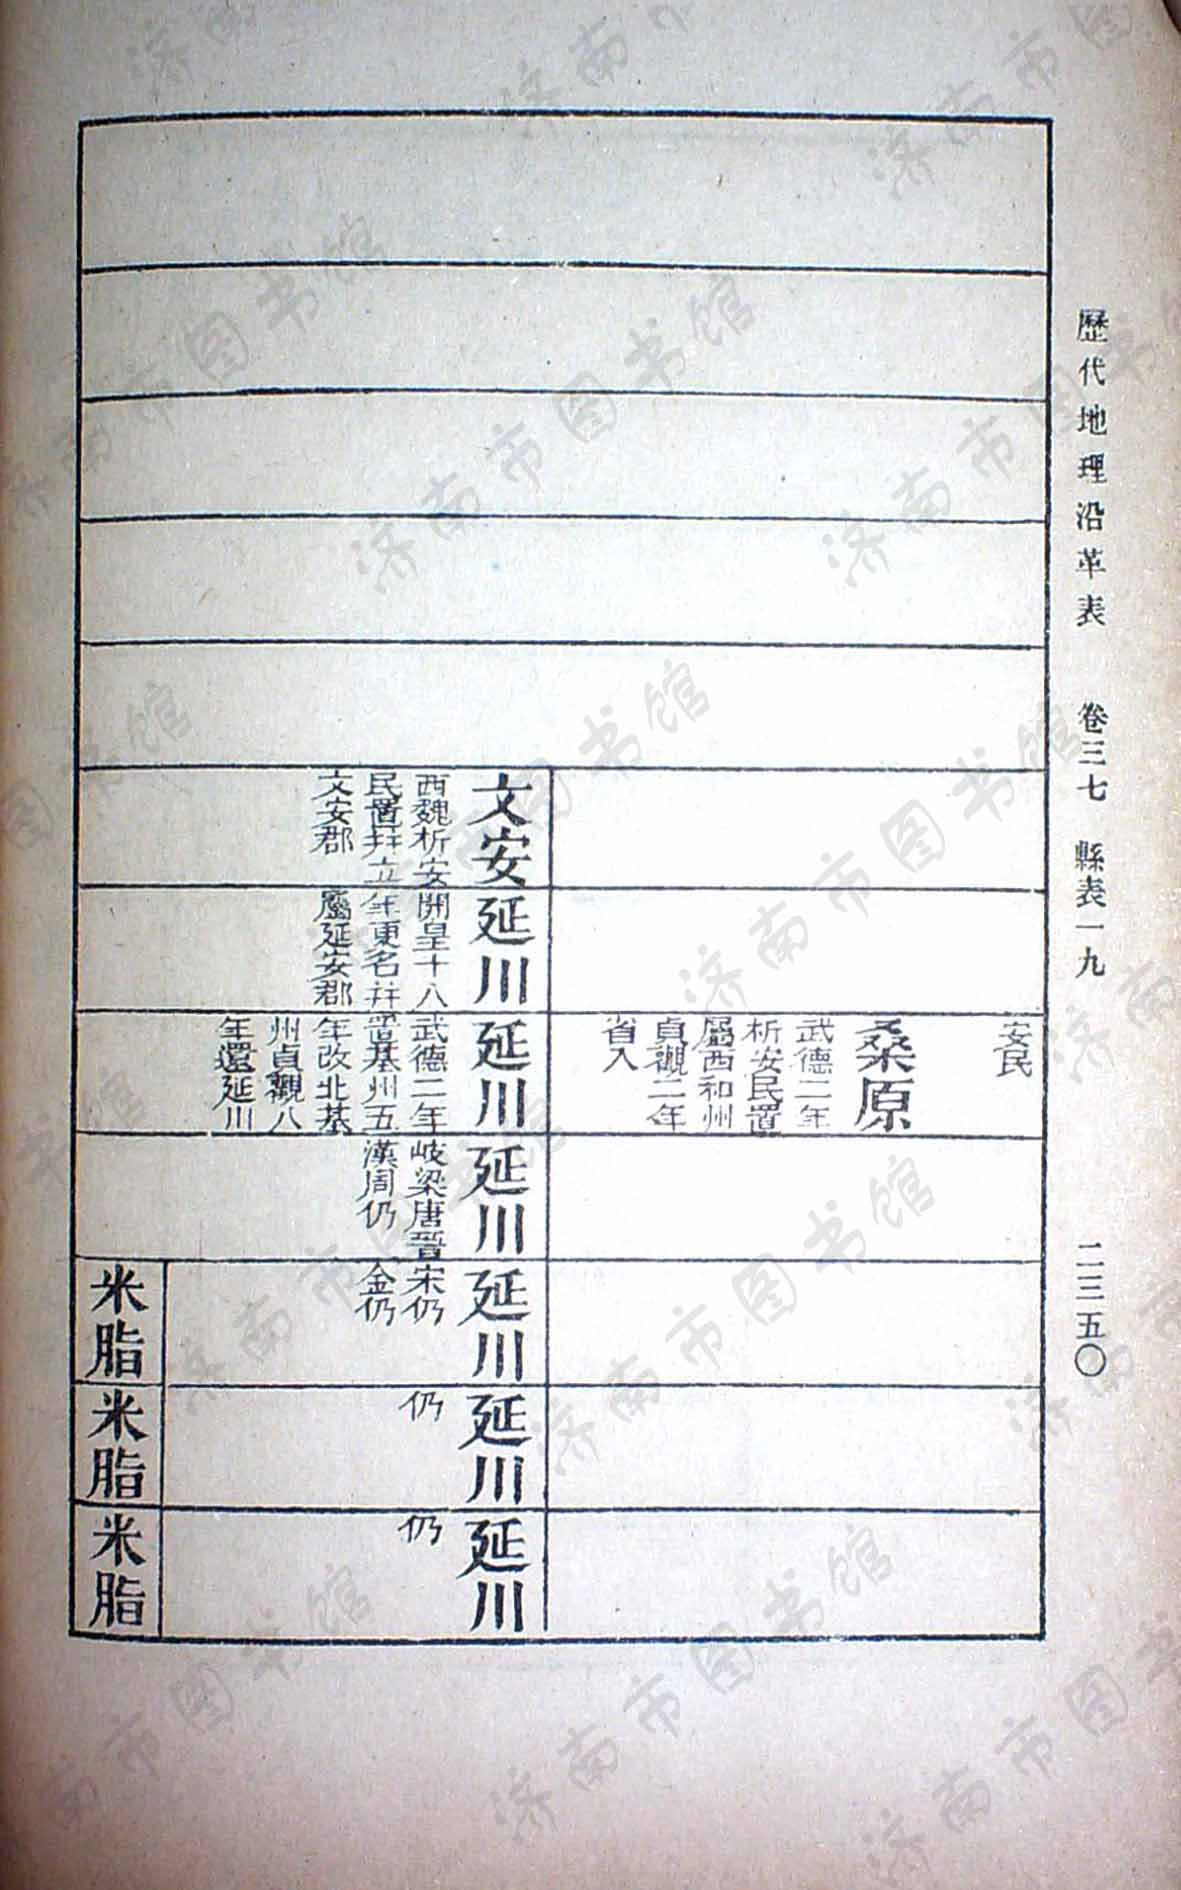 歷代地理沿革表 卷三七 縣表一九 二三五〇
安民
桑原
武德二年
析安民置
屬西和州
貞觀二年
省入
文安
西魏析安
民置并立
文安郡
延川
開皇十八
年更名并
屬延安郡
延川
武德二年
置基州五
年改北基
州貞觀八
年還延川
延川
岐梁唐晉
漢周仍
延川
宋仍
金仍
延川
仍
延川
仍
米脂
米脂
米脂
济南市图书馆